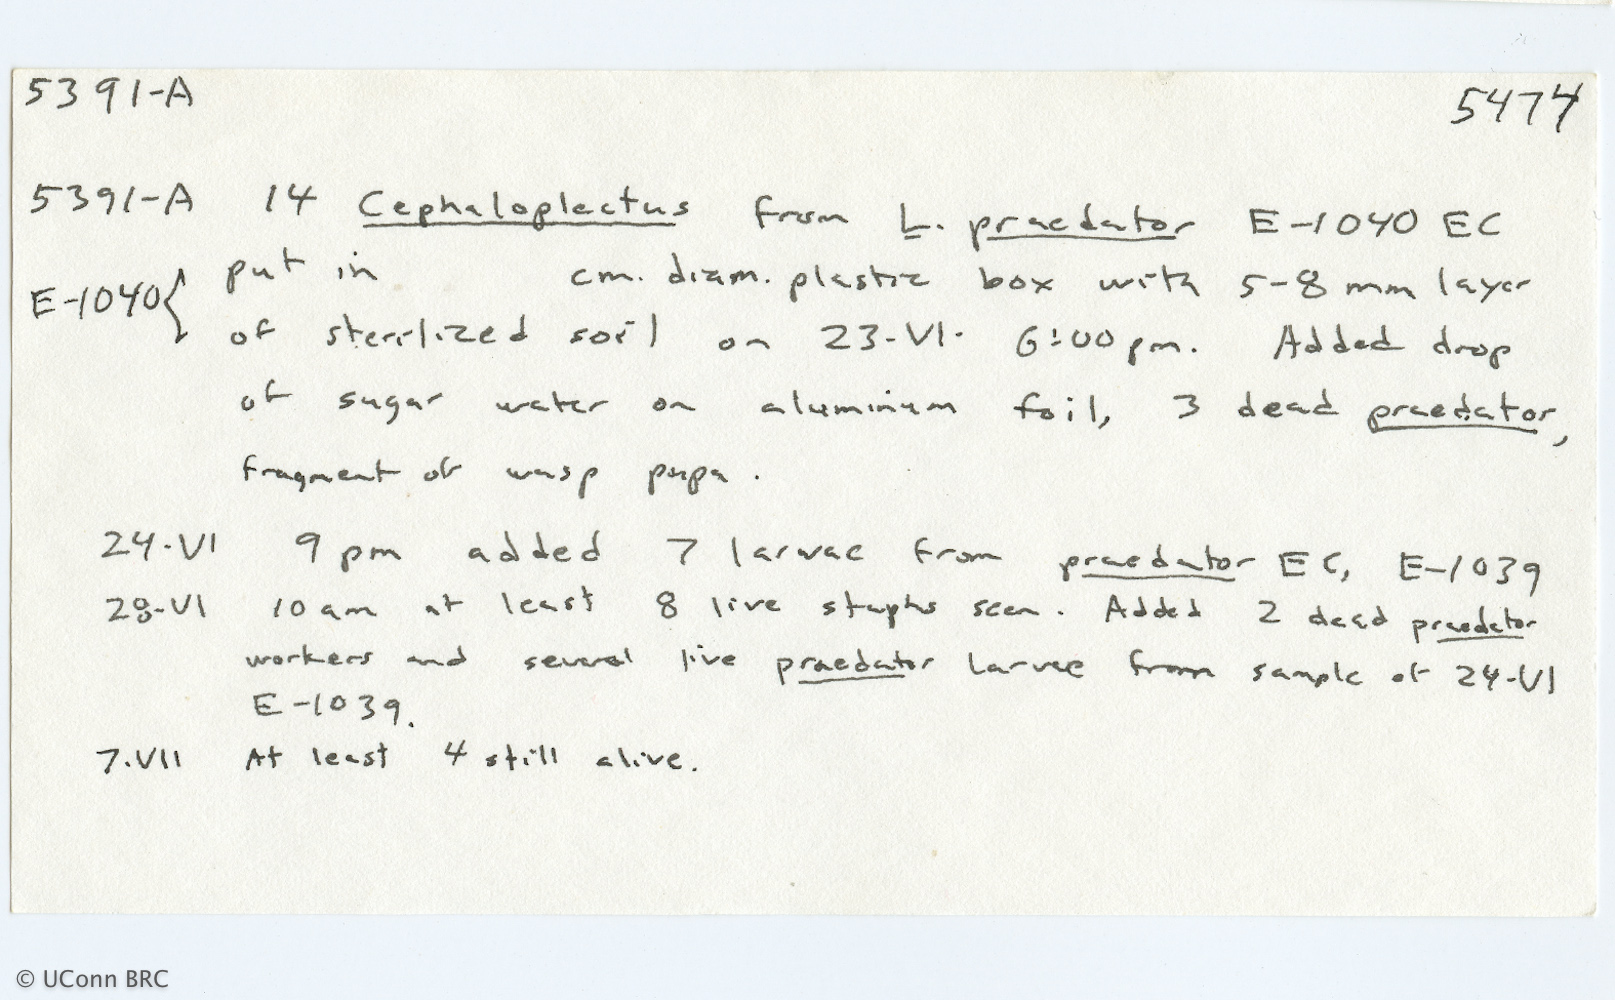 5391-A 5474
5391-A 14 Cephaloplectus from L. praedator E-1040 EC
E-1040{ put in cm. diam. plastic box with 5-8 mm layer
of sterilized soil on 23-VI. 6:00 pm. Added drop
of sugar water on aluminum foil, 3 dead praedator,
fragment of wasp pupa.
24-VI 9 pm added 7 larvae from praedator EC, E-1039
28-VI 10 am at least 8 live staphs seen. Added 2 dead praedator
workers and several live praedator larvae from sample of 24-VI
E-1039.
7.VII At least 4 still alive.
© UConn BRC